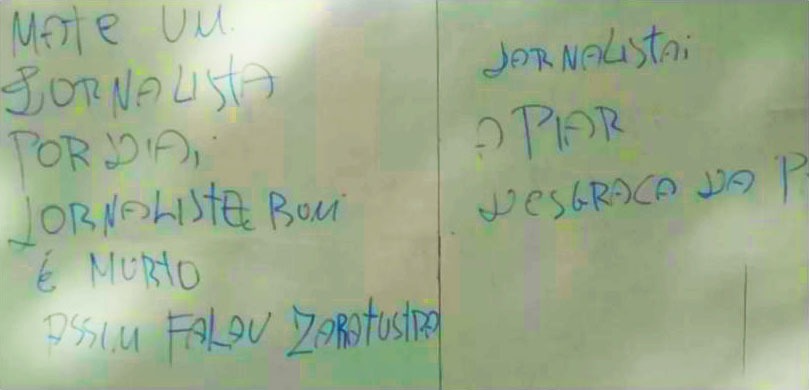 MATE UM
JORNALISTA
POR DIA,
JORNALISTE BOM
É MORTO
ASSIM FALAU ZARATUSTRA
JORNALISTAI
A PIAR
DESGRACA DA P